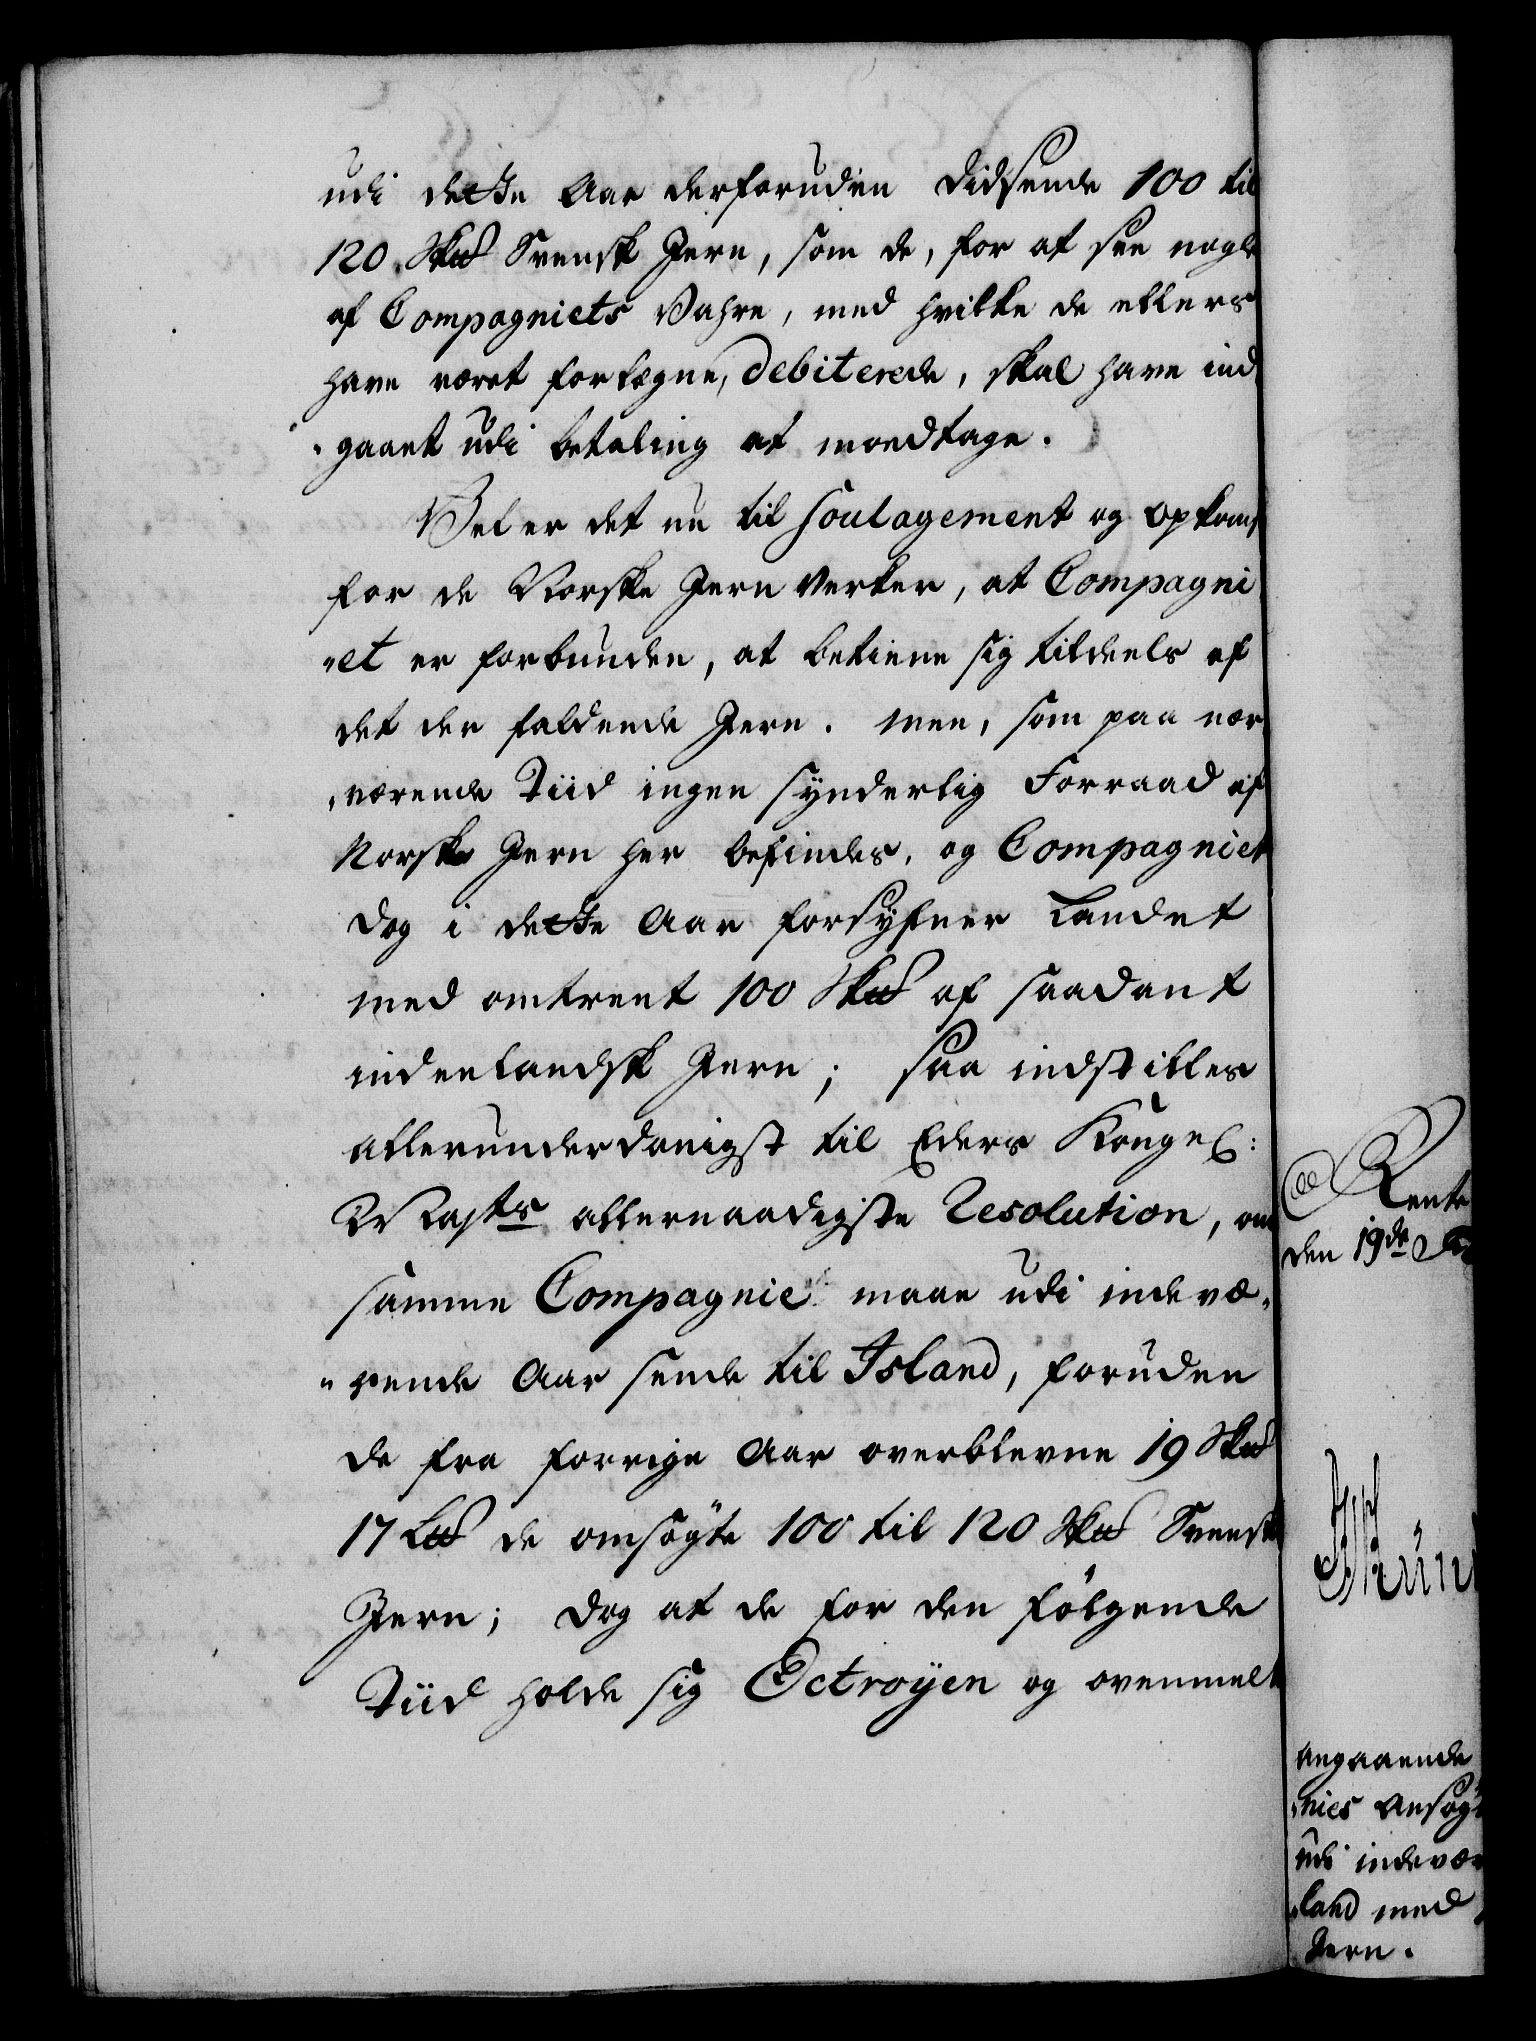 udi dette Aar derforuden didsende 100 til
120 Sk℔ Svensk Jern, som de, for at see nogle
af Compagniets Vahre, med hvilke de ellers
have været forlægne, debiterede, skal have ind
„gaaet udi betaling at modtage.
Vel er det nu til soulagement og opkomst
for de Norske Jern Verker, at Compagni
„et er forbunden, at betiene sig tildeels af
det der faldende Jern. Men, som paa nær
„værende Tiid ingen synderlig Forraad af
Norske Jern her befindes, og Compagniet
dog i dette Aar forsyner Landet
med omtrent 100 Sk℔ af saadant
indenlandsk Jern; saa indstilles
allerunderdanigst til Eders Kongel:
Maÿts allernaadigste Resolution, om
samme Compagnie maae udi indevæ„
„rende Aar sende til Island, foruden
de fra forrige Aar overblevne 19 Sk℔
17 L℔ de omsøgte 100 til 120 Sk℔ Svensk
Jern; dog at de for den følgende
Tiid holde sig Octroyen og ovenmelt
Rente
den 19de
angaaende
„nies Ansøg
udi indevær
„land med
Jern.